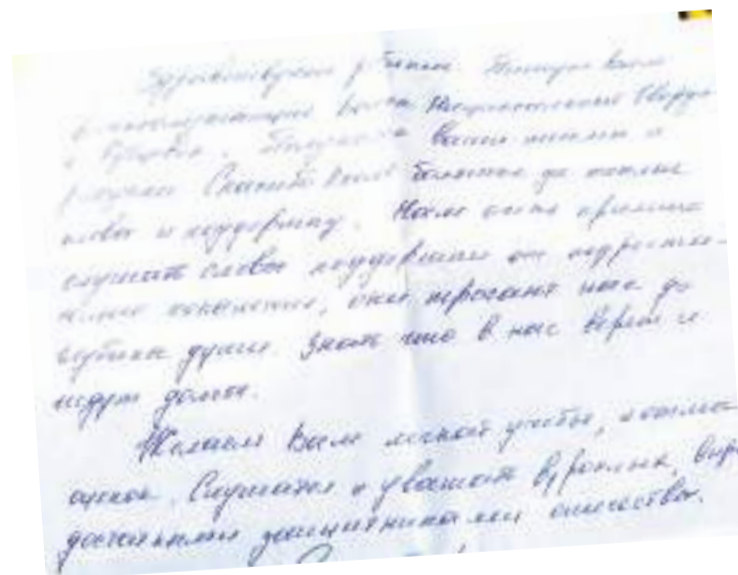 Здравствуйте ребята. Пишут Вам
военнослужащие войск Национальной Гвардии
Получили Ваши письма и
рисунки Спасибо Вам большое за теплые
слова и поддержку. Нам очень приятно
слушать слова поддержки от подрастаю-
щего поколения, они трогают нас до
глубины души. Знать что в нас верят и
ждут дома.
Желаем Вам легкой учебы, и отлич
оценок. Слушаться и уважать взрослых, выр
достойными защитниками отечества.